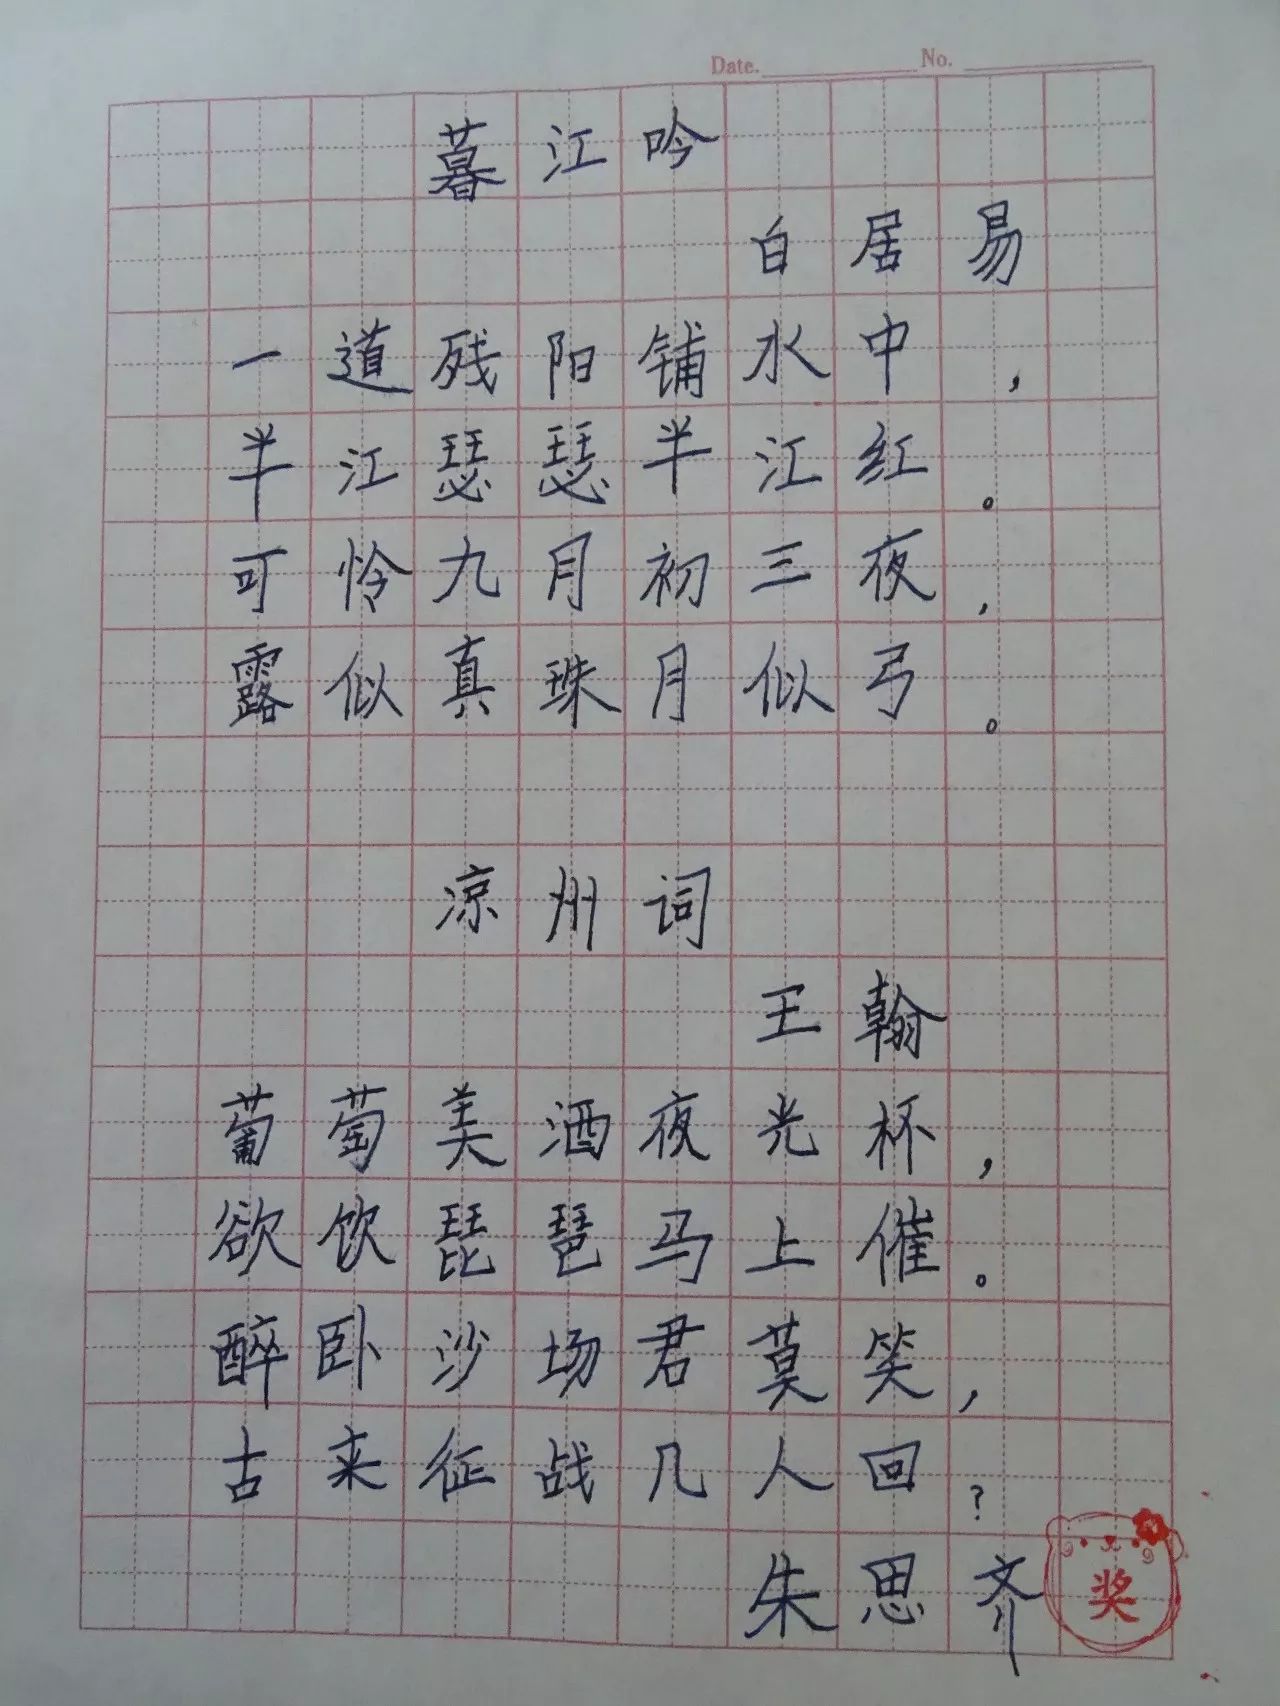 Date. No.
暮江吟
白居易
一道残阳铺水中,
半江瑟瑟半江红。
可怜九月初三夜,
露似真珠月似弓。
凉州词
王翰
葡萄美酒夜光杯,
欲饮琵琶马上催。
醉卧沙场君莫笑,
古来征战几人回?
朱思齐
奖